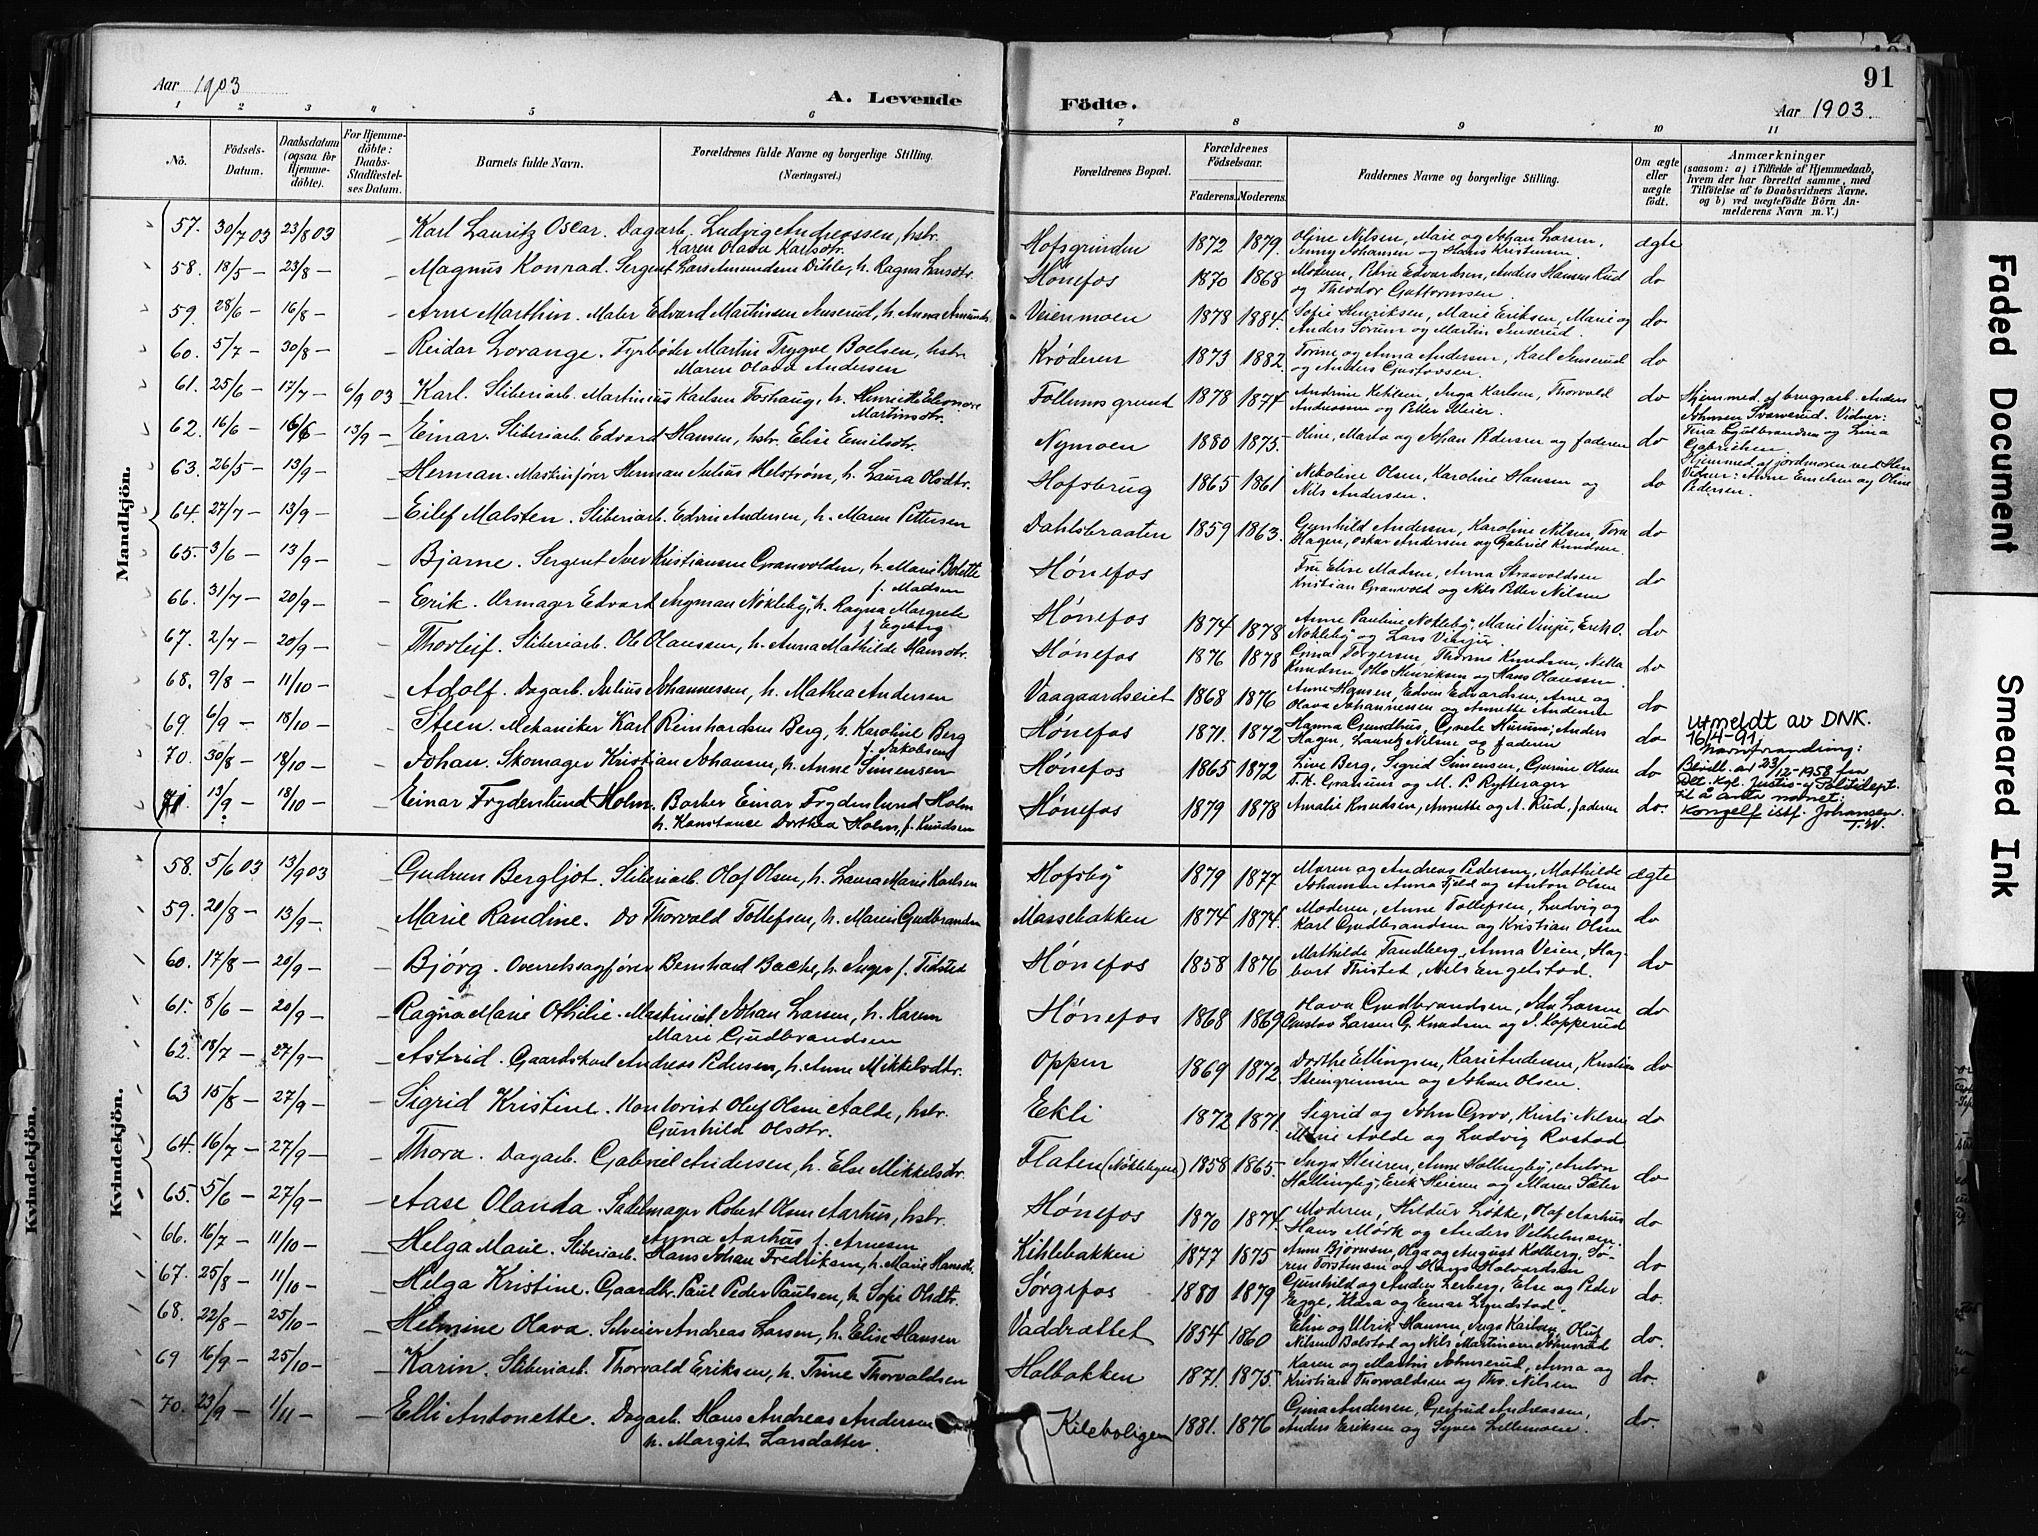 Aar 1903
A. Levende
Födte.
91
Aar 1903.
1 2 3 4 5 6 7 8 9 10 11
No.
Födsels-
Datum.
Daabsdatum
(ogsaa for
Hjemme-
döbte).
For Hjemme-
döbte:
Daabs-
Stadfæstel-
ses Datum.
Barnets fulde Navn.
Forældrenes fulde Navne og borgerlige Stilling.
(Næringsvei.)
Forældrenes Bopæl.
Forældrenes
Födselsaar.
Faderens. Moderens.
Faddernes Navne og borgerlige Stilling.
Om ægte
eller
uægte
födt.
Anmærkninger
(saasom: a) i Tilfælde af Hjemmedaab,
hvem der har forrettet samme, med
Tilföielse af to Daabsvidners Navne.
og b) ved uægtefödte Börn An-
melderens Navn m. V.)
Mandkjön.
57. 30/7 03 23/8 03 – Karl Lauritz Oscar. Dagarb. Ludvig Andreassen, hstr.
Karen Olava Karlsdtr. Hofsgrunden 1872 1879. Oline Nilsen, Marie og Johan Larsen,
Jenny Johansen og Hans Kristensen. ægte
58. 18/5 – 23/8 – – Magnus Konrad. Sergent Lars Amundsen Dihle, h. Ragna Larsdtr. Hønefos 1870 1868 Moderen, Edvardsen, Anders Hansen Rud
og Theodor Guttormsen. do
59. 28/6 – 16/8 – – Arne Marthin. Maler Edvard Martinsen Aaserud, h. Anna Amunds. Veienmoen 1878 1884. Sofie Henriksen, Marie Eriksen, Marie og
Anders Sørum og Martin Aaserud. do
60. 5/7 – 30/8 – – Reidar Lorange. Fyrbøder Martin Trygve Boelsen, hstr
Maren Olava Andersen Krøderen 1873 1882. Torine og Anna Andersen, Karl Aaserud
og Anders Gustavsen. do
61. 25/6 – 17/7 – 6/9 03 Karl. Sliberiarb. Martinius Karlsen Foshaug, h. Henriette Eleonore
Martinsdtr. Follumsgrund 1878 1874 Andrine Kihlsen, Inga Karlsen, Thorvald
Andreassen og Petter Meier. do Hjemmed. af brugsarb. Anders
Johnsen Svarverud. Vidner:
Tina Gulbrandsen og Lina
Gabrielsen
62. 16/6 – 16/6 13/9 – Einar. Sliberiarb. Edvard Hansen, hstr. Elise Emilsdtr. Nymoen 1880 1875. Oline, Marta og Johan Pedersen og faderen do Hjemmed. af jordmoren ved Hen
Vidner: Anne Emilsen og Oline
Pedersen.
63. 26/5 – 13/9 – Herman. Maskinfører Herman Julius Helstrøm, h. Laura Olsdtr. Hofsbrug 1865 1861 Nikoline Olsen, Karoline Hansen og
Nils Andersen. do
64. 27/7 – 13/9 – – Eilef Malsten. Sliberiarb. Edvin Andersen, h. Maren Pettersen Dahlsbraaten 1859 1863. Gunhild Andersen, Karoline Nilsen, Tora
Hagen, Oskar Andersen og Gabriel Knudsen. do
65 – 3/6 – 13/9 – – Bjarne. Sergent Iver Kristiansen Granvolden, h. Marie Bolette
f. Madsen Hønefos Fru Elise Madsen, Anna Stranvoldsen
Kristian Granvold og Nils Petter Nilsen do
66. 31/7 – 20/9 – – Erik. Urmager Edvard Nøkleby, h. Ragna Margrete
f. Egeberg Hønefos 1874 1878 Anne Pauline Nøkleby, Marie Vinju, Erik O.
Nøkleby og Lars Vinju do
67. 2/7 – 20/9 – – Thorleif. Sliberiarb. Ole Olaussen, h. Anna Mathilde Hansdtr. Hønefos 1876 1878 Torgersen, Thorine Knudsen, Netta
Knudsen, Otto Henriksen og Hans Olaussen. do
68. 9/8 – 11/10 – – Adolf. Dagarb. Julius Johannessen, h. Mathea Andersen Vaagaardseiet 1868 1876 Anne Hansen, Edvin Edvardsen, Arne og
Olava Johannessen og Annette Andersen do
69. 6/9 – 18/10 – – Steen. Mekaniker Karl Reinhardsen Berg, h. Karoline Berg
f. Jakobsen Hønefos 1871. 1872 Hanna Gundhus, Grete Hurum, Anders
Hagen, Lauretz Nilsen og faderen do Utmeldt av DNK.
16/4-91
70. 30/8 – 18/10 – – Johan. Skomager Kristian Johansen, h. Anne Simensen Hønefos 1865 1872 Live Berg, Sigrid Simensen, Gurine Olsen
T. K. Granum og M. P. Rytterager do Navnforandring:
Bevilln. av 23/12-1958 fra
Det. Kgl. Justis- og Politidept.
til å anta navnet:
Kongelf istf. Johansen.
T.W.
71 13/9 – 18/10 – – Einar Frydenlund Holm. Barber Einar Frydenlund Holm
h. Konstanse Dorthea Holm, f. Knudsen Hønefos 1879 1878 Amalie Knudsen, Annette og A. Rud, faderen do.
Kvindekjön.
58. 5/6 03 13/9 03 – Gudrun Bergljot. Sliberiarb. Olaf Olsen, h. Laura Marie Karlsen Hofsby 1879 1877 Maren og Andreas Pedersen, Mathilde
Johansen Anna Fjeld og Anton Olsen ægte
59. 20/8 – 13/9 – – Marie Randine. Do Thorvald Tollefsen, h. Maren Gudbrandsen Massebakken 1874 1874. Moderen, Anne Tollefsen, Ludvig og
Karl Gudbrandsen og Kristian Olsen do
60. 17/8 – 20/9 – – Bjørg. Overretssagfører Bernhard Bache, h. Inger f. Tidsted Hønefos 1858 1876 Mathilde Tandberg, Anna Veien, Hag-
bart Thisted, Nils Engelstad. do
61. 8/6 – 20/9 – – Ragna Marie Othilie. Maskinist Johan Larsen, h. Karen
Marie Gudbrandsen Hønefos 1868 1869 Olava Gudbrandsen, Ida Larsen
Gustav Larsen G. Knudsen og S. Kopperud do
62. 18/7 – 27/9 – – Astrid. Gaardskarl Andreas Pedersen, h. Anne Mikkelsdtr. Oppen 1869 1872. Dorthe Ellingsen, Kari Andersen, Kristian
Steingrimsen og Johan Olsen. do
63 15/8 – 27/9 – – Sigrid Kristine. Kontorist Oluf Olsen Aalde, hstr.
Gunhild Olsdtr. Eekli 1872 1871. Sigrid og John Grov, Kristi Nilsen
Marie Aalde og Ludvig Rostad do
64. 16/7 – 27/9 – – Thora. Dagarb. Gabriel Andersen, h. Else Mikkelsdtr. Flaten (Nøklebyeie) 1858 1865. Inga Heieren, Anne Hallingby, Anton
Hallingby, Erik Heieren og Maren Sæter do
65. 5/6 – 27/9 – – Aase Olanda. Salmager Robert Olsen Aarhus, hstr.
Anna Aarhus f. Arnesen Hønefos 1870 1874. Moderen, Hildur Løkke, Olaf Aarhus
Hans Mørk og Anders Vilhelmsen. do
66. 16/7 – 11/10 – – Helga Marie. Sliberiarb. Hans Johan Fredriksen, h. Marie Hansdtr. Kihlebakken 1877 1875 Anne Bjørnsen, Olga og August Kolberg, Sø-
ren Torstensen og Hans Halvardsen do
67. 25/8 – 11/10 – – Helga Kristine. Gaardbr. Paul Peder Paulsen, h. Sofie Olsdtr. Sørgefos 1880 1879 Gunhild og Anders Lerberg, Else og Peder
Egge, Klara og Einar Lyndstad. do.
68. 22/8 – 25/10 – – Helmine Olava. Selveier Andreas Larsen, h. Elise Hansen Vaddrættet 1854 1860 Elin og Ulrik Hansen, Inga Karlsen, Oluf
Nilsen Bolstad og Nils Martinsen do.
69 16/9 – 25/10 – – Karin. Sliberiarb. Thorvald Eriksen, h. Trine Thorvaldsen Halbakken 1871. 1875. Karen og Martin Johnserud, Anna og
Kristian Thorvaldsen og Ths. Nilsen do.
70. 23/9 – 1/11 – – Elli Antonette. Dagarb. Hans Andreas Andersen
h. Margit Larsdatter. Kileboligen 1881. 1876 Gina Andersen, Gertrud Andreassen,
Anders Eriksen og Syver Lillemoen. do.
Kvindekjön.
Faded Document
Smeared Ink